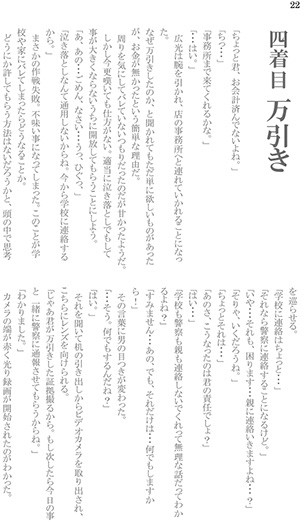 22
四着目 万引き
「ちょっと君、お会計済んでないよね。」
「らっ・・・」
「事務所まで来てくれるかな。」
「・・・はい。」
広光は腕を引かれ、店の事務所へと連れていかれることになっ
た。
なぜ万引きしたのか、と聞かれてもただ単に欲しいものがあった
が、お金が無かったという簡単な理由だ。
周りを気にしてバレていないつもりだったのだが甘かったようだ。
しかし今更嘆いても仕方がない。適当に泣き落としでもして
事が大きくならないうちに開放してもらうことにしよう。
「あ、あの・・・ごめん、なさい・・・うっ、ひぐっ。」
「泣き落としなんて通用しないからね、今から学校に連絡する
から。」
まさかの作戦失敗。不味い事になってしまった。このことが学
校や家にバレてしまったらどうなることか。
どうにか許してもらう方法はないだろうかと、頭の中で思考
を巡らせる。
「学校に連絡はちょっと・・・」
「それなら警察に連絡することになるけど。」
「いや・・・それも、困ります・・・親に連絡いきますよね・・・？」
「そりゃ、いくだろうね。」
「ちょっとそれは・・・」
「あのさ、こうなったのは君の責任でしょ？」
「はい・・・」
「学校も警察も親も連絡しないでくれって無理な話だってわか
るよね？」
「すみません・・・あの、でも、それだけは・・・何でもしますか
ら！」
その言葉に男の目つきが変わった。
「・・・そう、何でもするんだね？」
「はい。」
それを聞いて机の引き出しからビデオカメラを取り出され、
こちらにレンズを向けられる。
「じゃあ君が万引きした証拠撮るから。もし次したら今日の事
と一緒に警察に通報させてもらうからね。」
「わかりました。」
カメラの端が赤く光り録画が開始されたのがわかった。